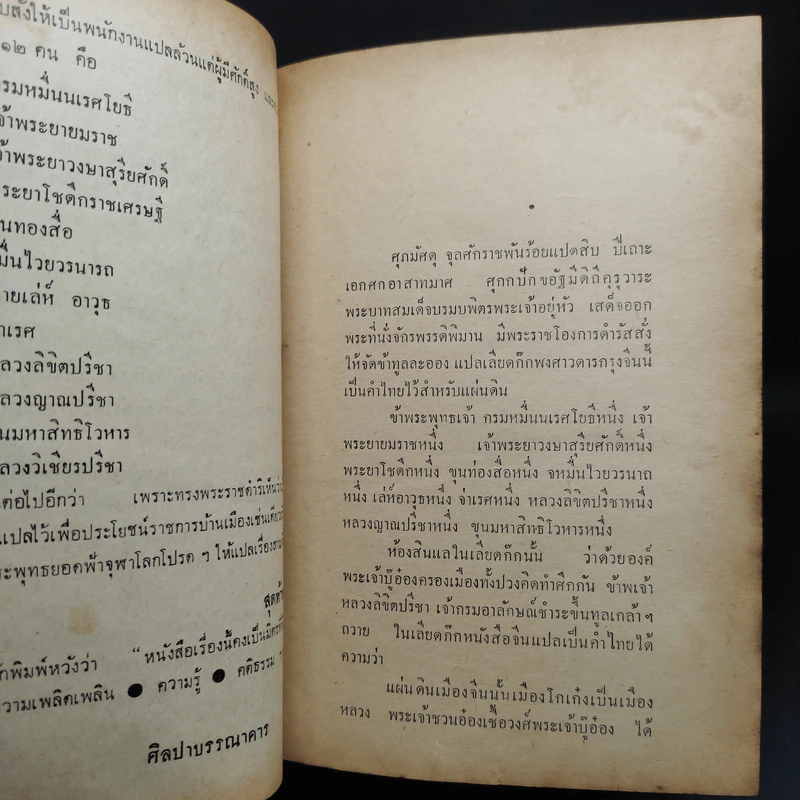 บสั่งให้เป็นพนักงานแปลล้วนแต่ผู้มีศักดิ์สูง
๑๒ คน คือ
รมหมื่นนเรศโยธี
จ้าพระยายมราช
จ้าพระยาวงษาสุริยศักดิ์
ระยาโชดึกราชเศรษฐี
นทองสื่อ
มื่นไวยวรนารถ
ายเล่ห์ อาวุธ
าเรศ
ลวงลิขิตปรีชา
ลวงญาณปรีชา
ุนมหาสิทธิโวหาร
ลวงวิเชียรปรีชา
ต่อไปอีกว่า เพราะทรงพระราชดำริเห็น
แปลไว้เพื่อประโยชน์ราชการบ้านเมืองเช่นเดีย
ะพุทธยอดฟ้าจุฬาโลกโปรด ฯ ให้แปลเรื่อง
สุดท้า
ักพิมพ์หวังว่า “หนังสือเรื่องนี้คงเป็นมิตร
วามเพลิดเพลิน ● ความรู้ ● คติธรรม
ศิลปาบรรณาคาร
ศุภมัศดุ จุลศักราชพันร้อยแปดสิบ ปีเถาะ
เอกศกอาสาฬมาศ ศุกกปักขอัฐมีดิถีคุรุวาระ
พระบาทสมเด็จบรมบพิตรพระเจ้าอยู่หัว เสด็จออก
พระที่นั่งจักรพรรดิพิมาน มีพระราชโองการดำรัสสั่ง
ให้จัดข้าทูลละออง แปลเลียดก๊กพงศาวดารกรุงจีนนี้
เป็นคำไทยไว้สำหรับแผ่นดิน
ข้าพระพุทธเจ้า กรมหมื่นนเรศโยธีหนึ่ง เจ้า
พระยายมราชหนึ่ง เจ้าพระยาวงษาสุริยศักดิ์หนึ่ง
พระยาโชดึกหนึ่ง ขุนท่องสื่อหนึ่ง จหมื่นไวยวรนาถ
หนึ่ง เล่ห์อาวุธหนึ่ง จ่าเรศหนึ่ง หลวงลิขิตปรีชาหนึ่ง
หลวงญาณปรีชาหนึ่ง ขุนมหาสิทธิโวหารหนึ่ง
ห้องสินแลในเลียดก๊กนั้น ว่าด้วยองค์
พระเจ้าบู๊อ๋องครองเมืองทั้งปวงคิดทำศึกกัน ข้าพเจ้า
หลวงลิขิตปรีชา เจ้ากรมอาลักษณ์ชำระขึ้นทูลเกล้า ฯ
ถวาย ในเลียดก๊กหนังสือจีนแปลเป็นคำไทยได้
ความว่า
แผ่นดินเมืองจีนนั้นเมืองโกเก๋งเป็นเมือง
หลวง พระเจ้าชวนอ๋องเชื้อวงศ์พระเจ้าบู๊อ๋อง ได้